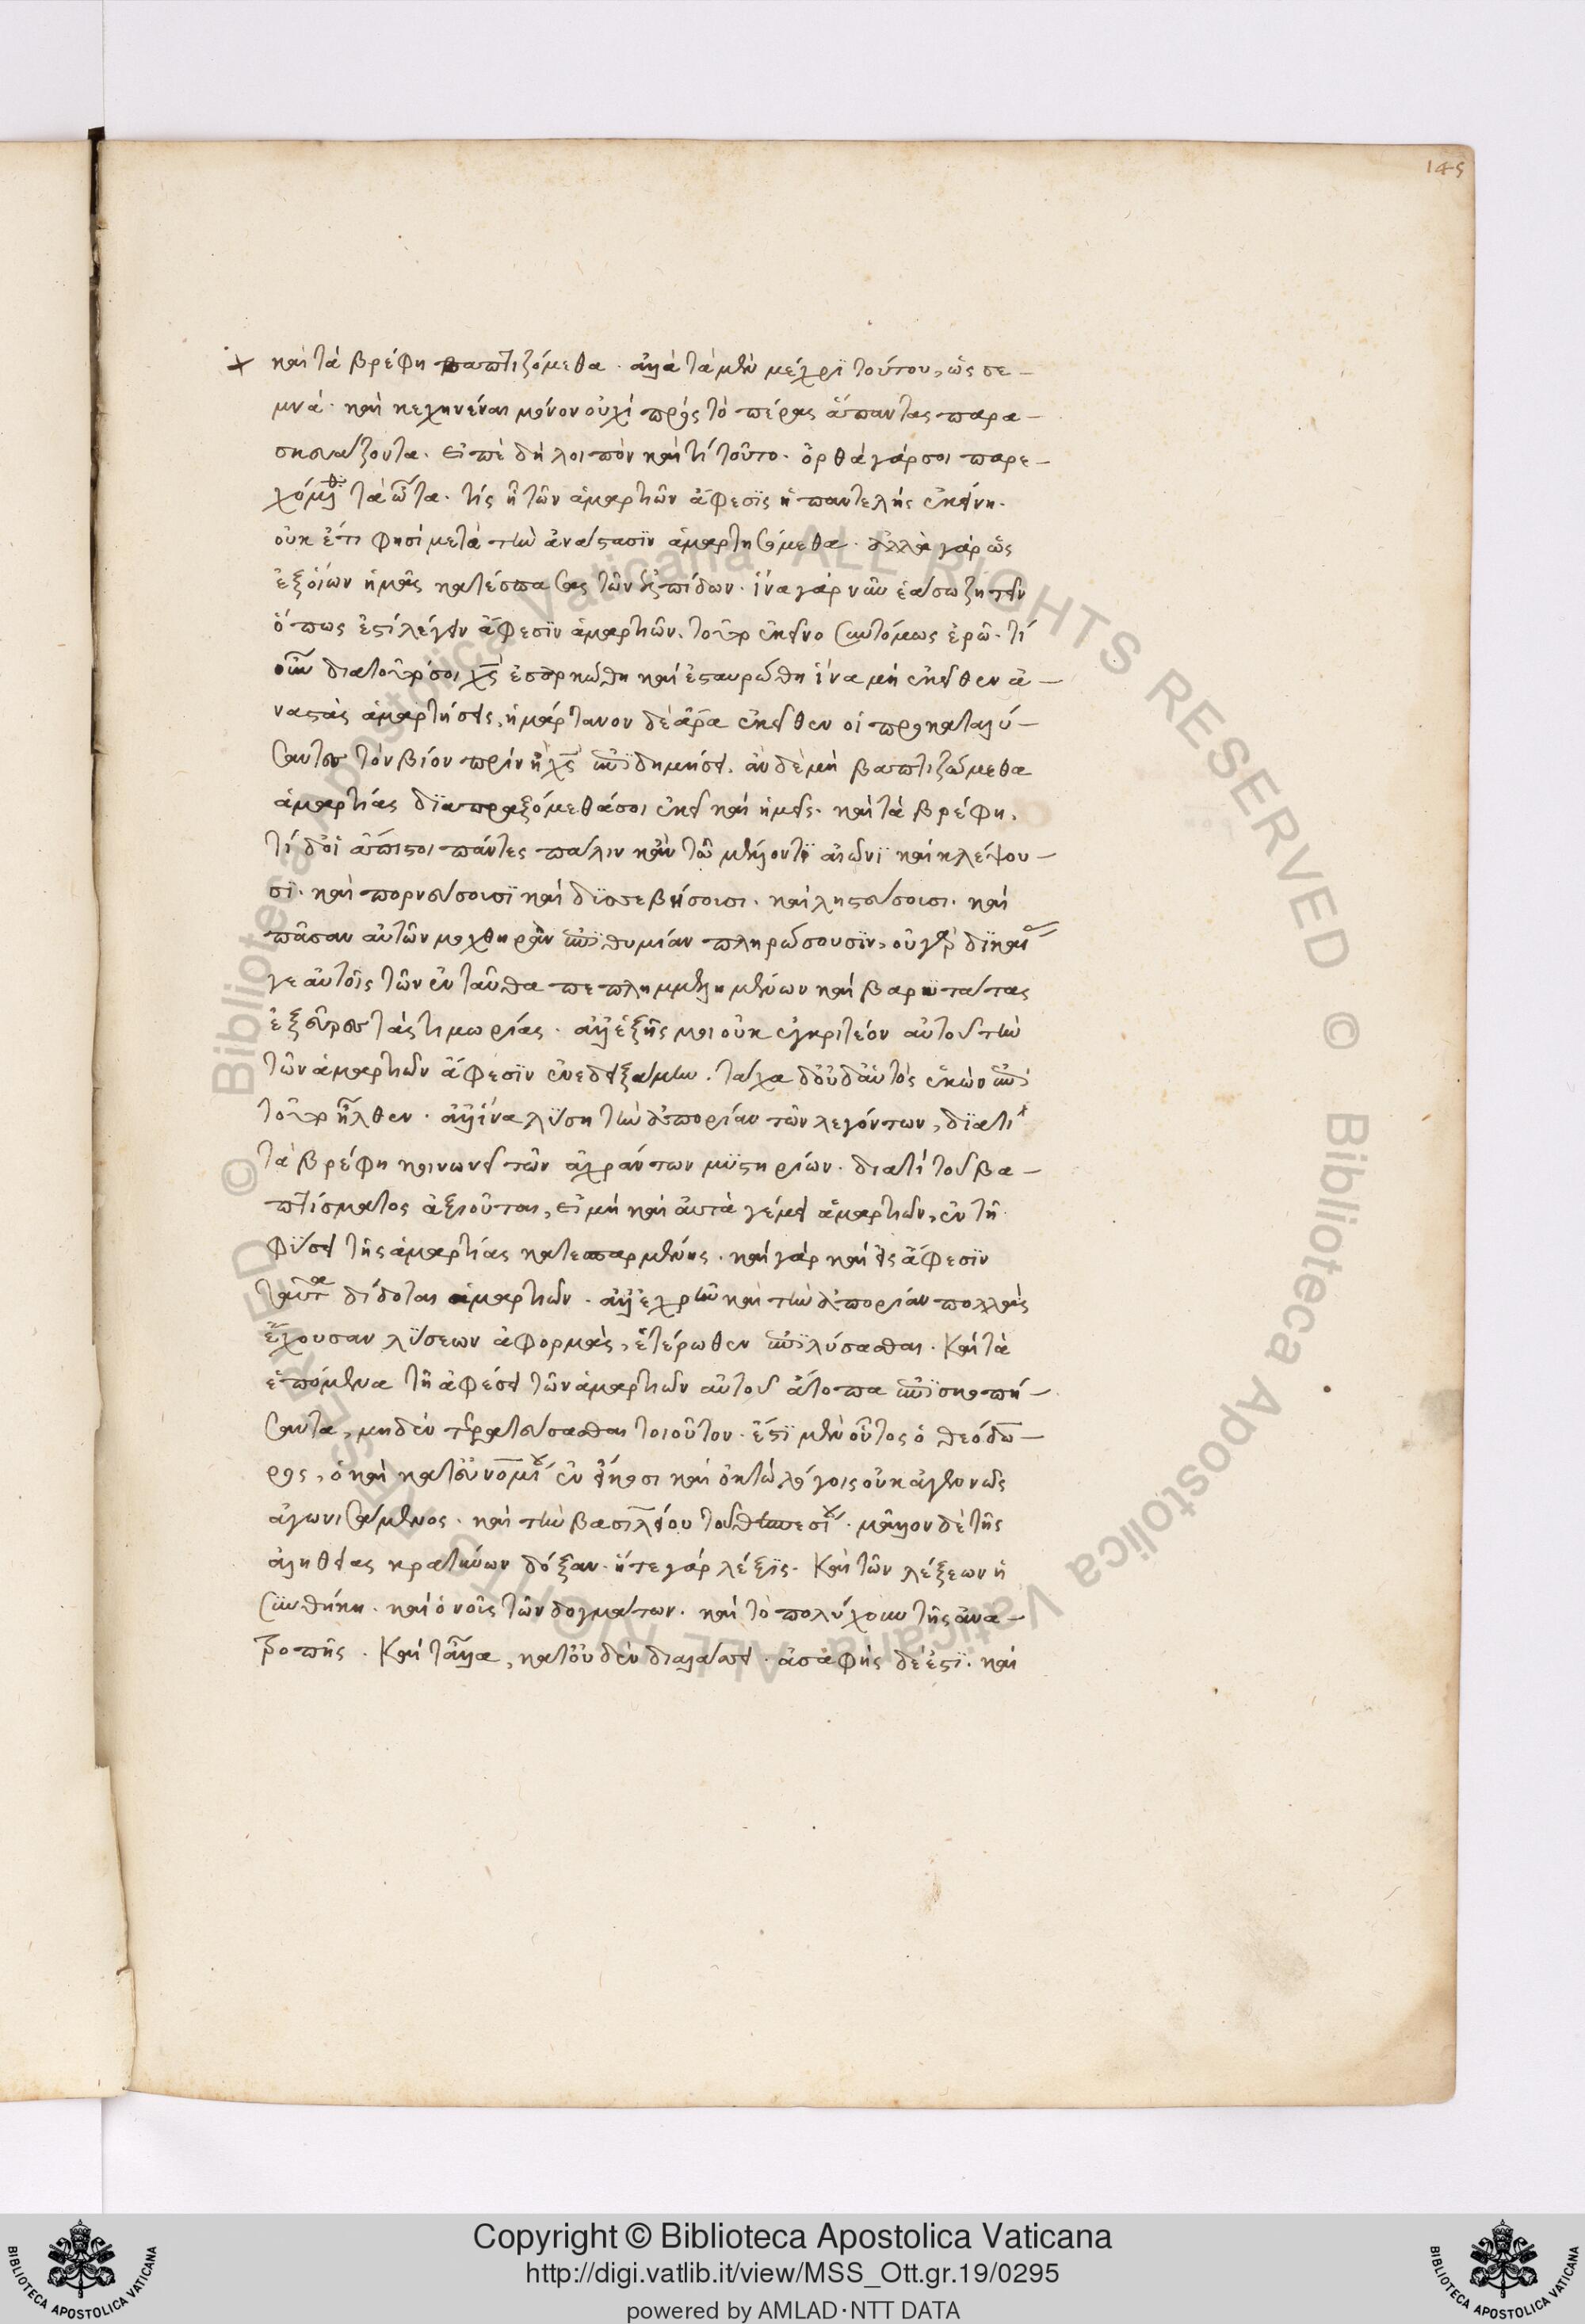 145
καὶ τὰ βρέφη βαπτιζόμεθα. ἀλλὰ τὰ μὲν μέχρι τούτου, ὡς σε-
μνά. καὶ κεχηνέναι μόνον οὐχὶ πρὸς τὸ πέρας ἅπαντας παρα-
σκευάζοντα. εἰπὲ δὴ λοιπὸν καὶ τί τοῦτο. ὀρθὰ γάρ σοι παρε-
χόμεθα τὰ ὦτα. τίς ἡ τῶν ἁμαρτιῶν ἄφεσις ἡ παντελὴς ἐκείνη.
οὐκ ἔτι φησὶ μετὰ τὴν ἀνάστασιν ἁμαρτησόμεθα. ἀλλὰ γὰρ ὡς
ἐξ οἵων ἡμᾶς κατέσπασας τῶν ἐλπίδων. ἵνα γὰρ νῦν ἐάσω ζητεῖν
ὅπως ἐστὶ λέγειν ἄφεσιν ἁμαρτιῶν. τοῦτο ἐκεῖνο συντόμως ἐρῶ. τί
οὖν διὰ τοῦτό σοι χς ἐσαρκώθη καὶ ἐσταυρώθη ἵνα μὴ ἐκεῖθεν ἀ-
ναστὰς ἁμαρτήσεις, ἡμάρτανον δὲ ἆρα ἐκεῖθεν οἱ προκαταλύ-
σαντες τὸν βίον πρὶν ἢ χς ἐπιδημήσει. ἂν δὲ μὴ βαπτιζώμεθα
ἁμαρτίας διαπραξόμεθά σοι ἐκεῖ καὶ ἡμεῖς. καὶ τὰ βρέφη.
τί δ' οἱ ἄπιστοι πάντες πάλιν κἀν τῷ μέλλοντι αἰῶνι καὶ κλέψου-
σι. καὶ πορνεύσουσι καὶ δυσσεβήσουσι. καὶ λῃστεύσουσι. καὶ
πᾶσαν αὐτῶν μοχθηρὰν ἐπιθυμίαν πληρώσουσιν, οὐ γὰρ δίκαι
γε αὐτοῖς τῶν ἐνταῦθα πεπλημμελημένων καὶ βαρυτάτας
τὰς τιμωρίας. ἀλλ' ἑξῆς μοι οὐκ ἐγκριτέον αὐτοῦ τὴν
τῶν ἁμαρτιῶν ἄφεσιν ἐνεδειξάμην. τάχα δ' οὐδ' αὐτὸς ἑκὼν ἐπὶ
τοῦτο ἦλθεν. ἀλλ' ἵνα λύσῃ τὴν ἀπορίαν τῶν λεγόντων, διατί
τὰ βρέφη κοινωνεῖ τῶν ἀχράντων μυστηρίων. διατί τοῦ βα-
πτίσματος ἀξιοῦται, εἰ μὴ καὶ αὐτὰ γέμει ἁμαρτιῶν, ἐν τῇ
φύσει τῆς ἁμαρτίας κατεσπαρμένης. καὶ γὰρ καὶ εἰς ἄφεσιν
ταῦτα δίδοται ἁμαρτιῶν. ἀλλ' ἐχρῆν καὶ τὴν ἀπορίαν πολλὰς
ἔχουσαν λύσεων ἀφορμὰς, ἑτέρωθεν ἐπιλύσασθαι. καὶ τὰ
ἑπόμενα τῇ ἀφέσει τῶν ἁμαρτιῶν αὐτοῦ ἄτοπα ἐπισκοπή-
σαντα, μηδὲν τερατεύσασθαι τοιοῦτον. ἔστι μὲν οὗτος ὁ θεόδω-
ρος, ὁ καὶ κατ' εὐνομίου ἐν εἴκοσι καὶ ὀκτὼ λόγοις οὐκ ἀγεννῶς
ἀγωνισάμενος. καὶ τὴν βασιλείου μᾶλλον δὲ τῆς
ἀληθείας κρατύνων δόξαν. ἥ τε γὰρ λέξις. καὶ τῶν λέξεων ἡ
συνθήκη. καὶ ὁ νοῦς τῶν δογμάτων. καὶ τὸ πολύχουν τῆς ἀνα-
τροπῆς. καὶ τἄλλα, κατ' οὐδὲν διαλλάττει. ἀσαφής δέ ἐστι. καὶ
© Biblioteca Apostolica Vaticana ALL RIGHTS RESERVED © Biblioteca Apostolica Vaticana ALL RIGHTS RESERVED
Copyright © Biblioteca Apostolica Vaticana
http://digi.vatlib.it/view/MSS_Ott.gr.19/0295
powered by AMLAD·NTT DATA
BIBLIOTECA APOSTOLICA VATICANA
BIBLIOTECA APOSTOLICA VATICANA